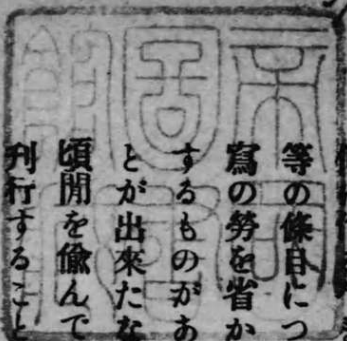 等の條目につ
寫の勞を省か
するものがあ
とが出來たな
頃閒を偸んで
刊行すること